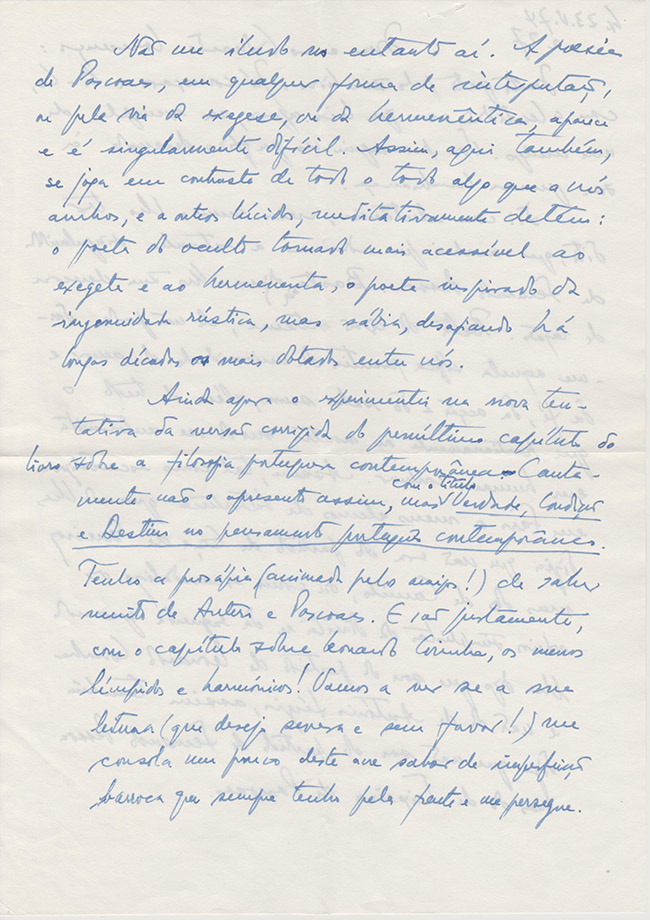 Não me iludo no entanto aí. A poesia
de Pascoaes, em qualquer forma de interpretação,
ou pela via da exegese, ou da hermenêutica, aparece
e é singularmente difícil. Assim, aqui também,
se joga em contraste de todo o todo algo que a nós
ambos, e a outros lúcidos, meditativamente detém:
o poeta do oculto tornado mais acessível ao
exegeta e ao hermeneuta, o poeta inspirado da
ingenuidade rústica, mas sábia, desafiando há
longas décadas os mais dotados entre nós.
Ainda agora o experimentei na nova ten-
tativa da versão corrigida do penúltimo capítulo do
livro sobre a filosofia portuguesa contemporânea. Canta-
com o título
mente não o apresento assim, mas Verdade, Condição
e Destino no pensamento português contemporâneo.
Tenho a prosápia (animada pelo amigo!) de saber
muito de Antero e Pascoaes. E são justamente,
com o capítulo sobre Leonardo Coimbra, os menos
límpidos e harmónicos! Vamos a ver se a sua
leitura (que desejo severa e sem favor!) me
consola um pouco deste sabor de imperfeição
barroca que sempre tenho pela frente e me persegue.